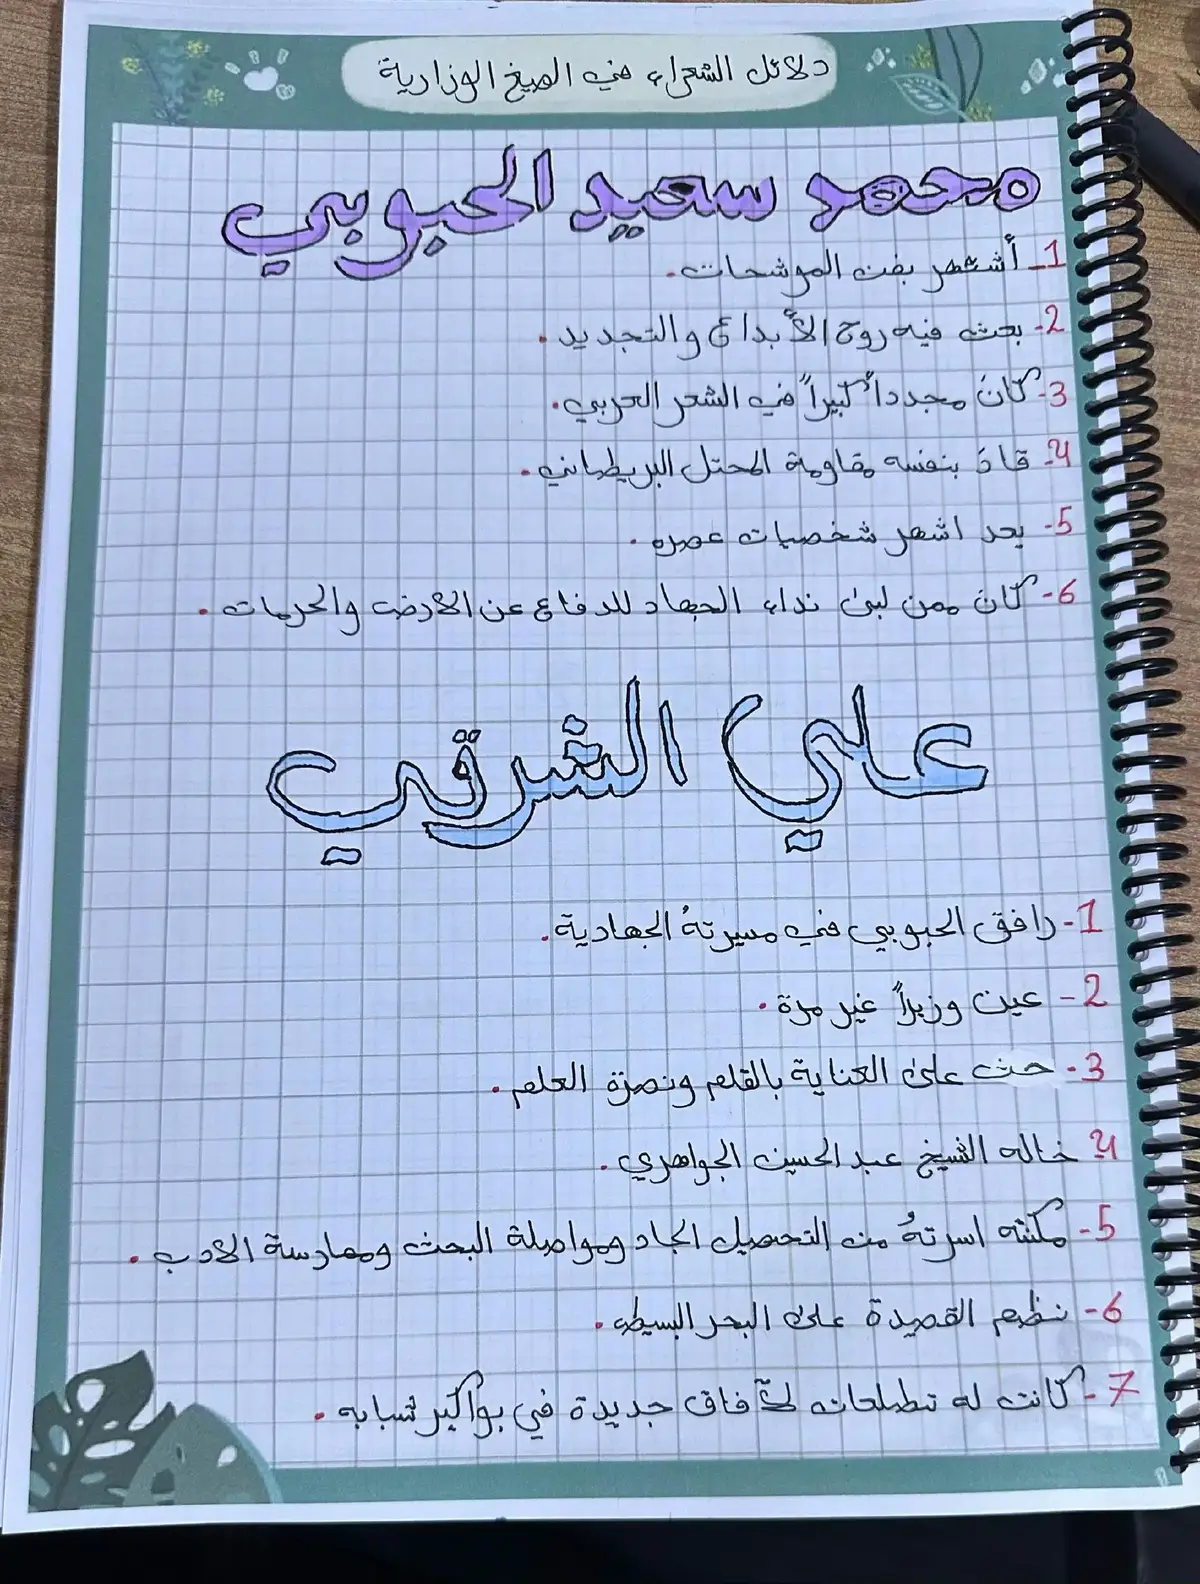 دلائل الشعراء في الصيغ الوزارية
محمد سعيد الحبوبي
1- أشتهر بفن الموشحات.
2- بعث فيه روح الأبداع والتجديد.
3- كانَ مجدداً كبيراً في الشعر العربي.
4- قادَ بنفسه مقاومة المحتل البريطاني.
5- يعد اشهر شخصيات عصره.
6- كانَ ممن لبىٰ نداء الجهاد للدفاع عن الارض والحرمات.
علي الشرقي
1- رافق الحبوبي في مسيرتهُ الجهادية.
2- عين وزيراً غير مرة.
3- حث علىٰ العناية بالقلم ونصرة العلم.
4- خاله الشيخ عبد الحسين الجواهري.
5- مكنته اسرتهُ من التحصيل الجاد ومواصلة البحث وممارسة الادب.
6- نظم القصيدة علىٰ البحر البسيط.
7- كانت له تطلعات لآفاق جديدة في بواكير شبابه.